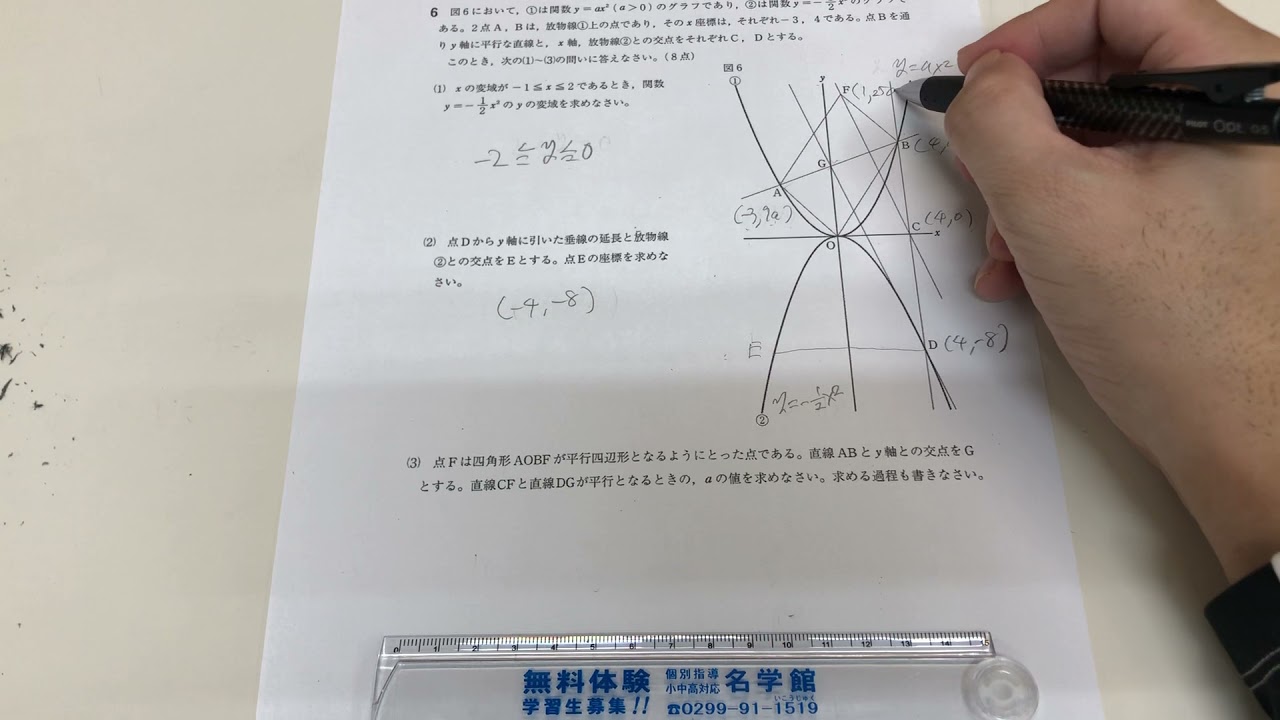 6 図6において,①は関数y=ax²(a>0)のグラフであり,②は関数y=-1/2x²のグラフで
ある。2点A,Bは,放物線①上の点であり,そのx座標は,それぞれ-3,4である。点Bを通
りy軸に平行な直線と,x軸,放物線②との交点をそれぞれC,Dとする。
このとき,次の(1)~(3)の問いに答えなさい。(8点)
(1) xの変域が-1≦x≦2であるとき,関数
y=-1/2x²のyの変域を求めなさい。
-2≦y≦0
(2) 点Dからy軸に引いた垂線の延長と放物線
②との交点をEとする。点Eの座標を求めな
さい。
(-4,-8)
図6
①
y
F(1,25a
y=ax²
G
B(4,
A
(-3,9a)
C(4,0)
x
O
E
D(4,-8)
y=-1/2x²
②
(3) 点Fは四角形AOBFが平行四辺形となるようにとった点である。直線ABとy軸との交点をG
とする。直線CFと直線DGが平行となるときの,aの値を求めなさい。求める過程も書きなさい。
0 1 2 3 4 5 6 7 8 9 10 11 12 13 14 15
無料体験
学習生募集!!
個別指導
小中高対応
名学館
いこうじゅく
☎0299-91-1519
PILOT Opt. 0.5